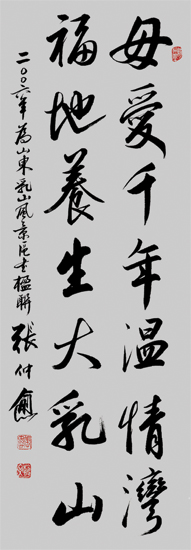 母愛千年温情灣
福地養生大乳山
二〇〇六年為山東乳山風景區書楹聯 張仲愈